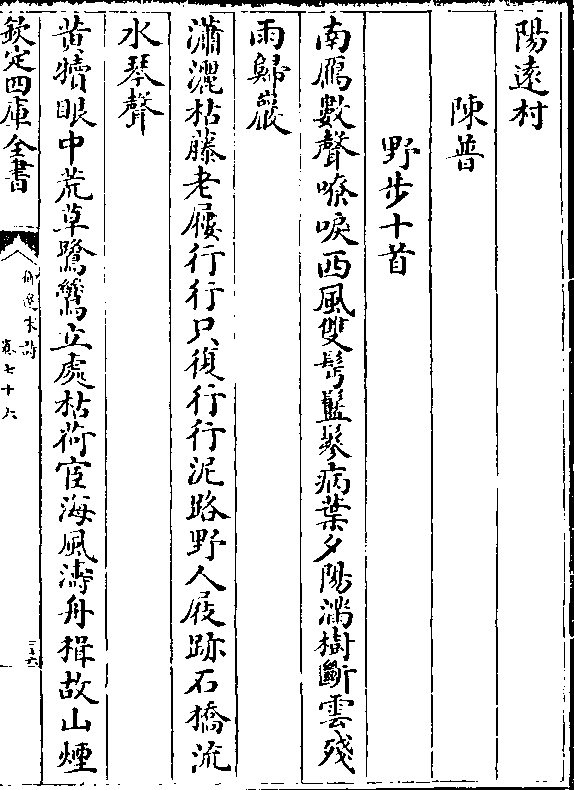 陽遠村
陳普
野步十首
南鴈數聲嘹唳西風雙髩鬅鬖病葉夕陽滿樹斷雲殘
雨歸巖
瀟灑枯藤老屨行行只復行行泥路野人屐跡石橋流
水琴聲
黃犢眼中荒草鷺鷥立處枯荷宦海風濤舟楫故山煙
欽定四庫全書
宋詩
卷七十六